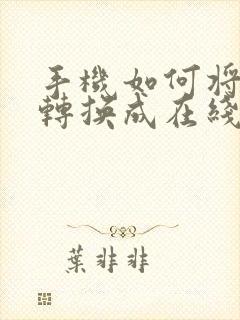 手機如何将
轉换成在綫
葉非非